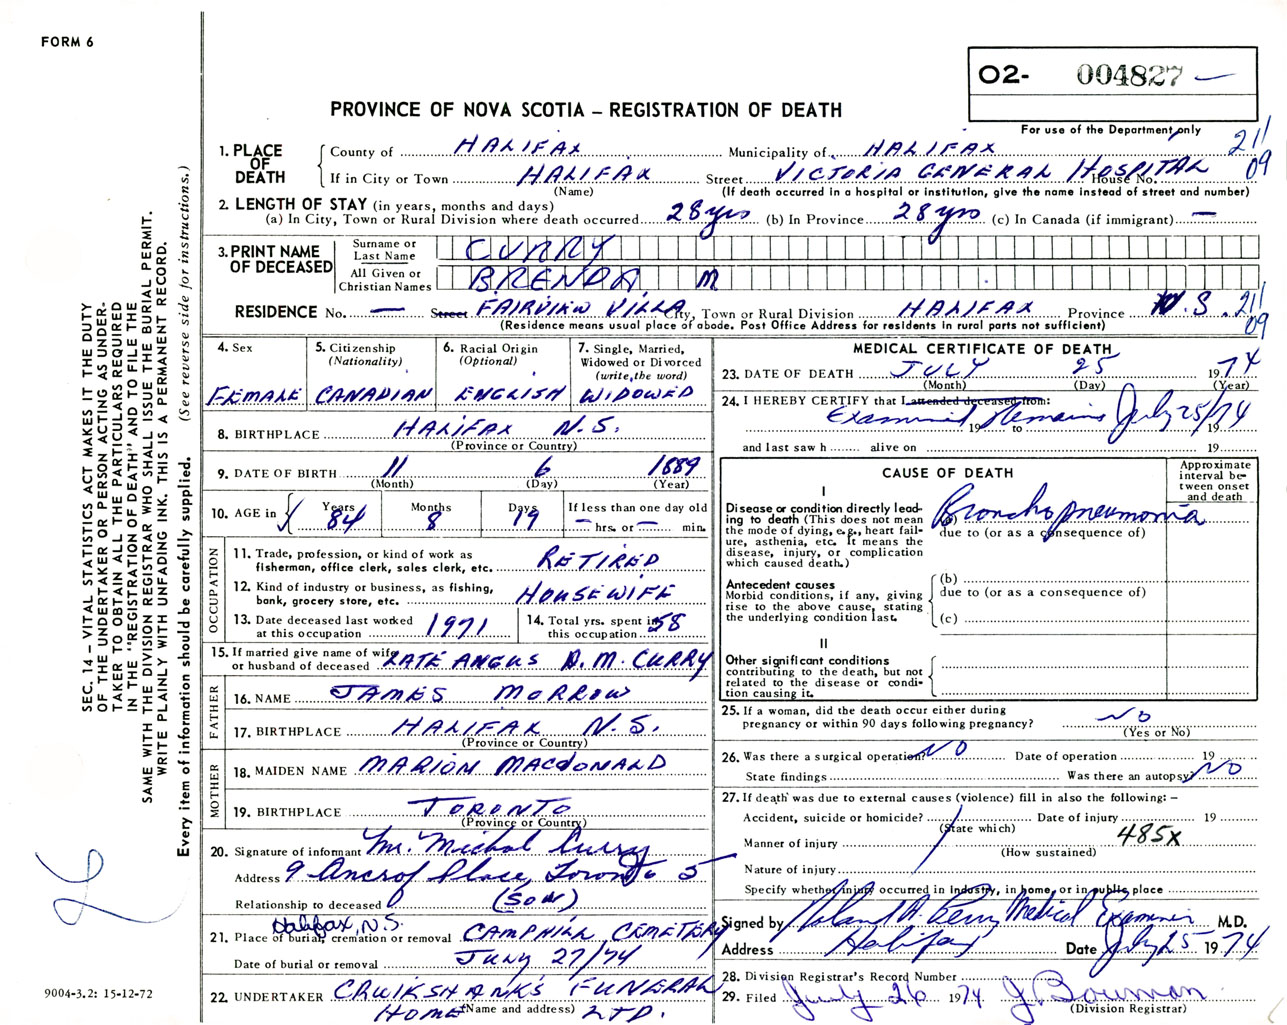 FORM 6
O2- 004827
PROVINCE OF NOVA SCOTIA – REGISTRATION OF DEATH
For use of the Department only
211
09
1. PLACE OF DEATH
County of HALIFAX Municipality of HALIFAX
If in City or Town HALIFAX Street VICTORIA GENERAL HOSPITAL House No.
(Name) (If death occurred in a hospital or institution, give the name instead of street and number)
2. LENGTH OF STAY (in years, months and days)
(a) In City, Town or Rural Division where death occurred 28 yrs (b) In Province 28 yrs (c) In Canada (if immigrant) —
3. PRINT NAME OF DECEASED
Surname or Last Name CURRY
All Given or Christian Names BRENDA M
RESIDENCE No. — Street FAIRVIEW VILLA City, Town or Rural Division HALIFAX Province N.S. 211
09
(Residence means usual place of abode. Post Office Address for residents in rural parts not sufficient)
4. Sex FEMALE
5. Citizenship (Nationality) CANADIAN
6. Racial Origin (Optional) ENGLISH
7. Single, Married, Widowed or Divorced (write the word) WIDOWED
8. BIRTHPLACE HALIFAX N.S.
(Province or Country)
9. DATE OF BIRTH 11 6 1889
(Month) (Day) (Year)
10. AGE in Years 84 Months 8 Days 19 If less than one day old — hrs. or — min.
OCCUPATION
11. Trade, profession, or kind of work as fisherman, office clerk, sales clerk, etc. RETIRED
12. Kind of industry or business, as fishing, bank, grocery store, etc. HOUSEWIFE
13. Date deceased last worked at this occupation 1971
14. Total yrs. spent in this occupation 58
15. If married give name of wife or husband of deceased LATE ANGUS D. M. CURRY
FATHER
16. NAME JAMES MORROW
17. BIRTHPLACE HALIFAX N.S.
(Province or Country)
MOTHER
18. MAIDEN NAME MARION MACDONALD
19. BIRTHPLACE TORONTO
(Province or Country)
20. Signature of informant Mr. Michal Curry
Address 9 Ancrof Place, Toronto 5
Relationship to deceased (SON)
Halifax, N.S.
21. Place of burial, cremation or removal CAMPHILL CEMETERY
Date of burial or removal JULY 27/74
22. UNDERTAKER CRUIKSHANKS FUNERAL
HOME (Name and address) LTD.
MEDICAL CERTIFICATE OF DEATH
23. DATE OF DEATH JULY 25 1974
(Month) (Day) (Year)
24. I HEREBY CERTIFY that I attended deceased from:
Examined Remains July 25/74
19 to 19
and last saw h alive on 19
CAUSE OF DEATH
Approximate interval between onset and death
I
Disease or condition directly leading to death (This does not mean the mode of dying, e.g., heart failure, asthenia, etc. It means the disease, injury, or complication which caused death.)
(a) Bronchopneumonia
due to (or as a consequence of)
Antecedent causes
Morbid conditions, if any, giving rise to the above cause, stating the underlying condition last.
(b)
due to (or as a consequence of)
(c)
II
Other significant conditions contributing to the death, but not related to the disease or condition causing it.
25. If a woman, did the death occur either during pregnancy or within 90 days following pregnancy? NO
(Yes or No)
26. Was there a surgical operation? NO Date of operation 19
State findings Was there an autopsy? NO
27. If death was due to external causes (violence) fill in also the following: –
Accident, suicide or homicide? Date of injury 19
(State which)
Manner of injury 485X
(How sustained)
Nature of injury
Specify whether injury occurred in industry, in home, or in public place
Signed by Roland A. Perry Medical Examiner M.D.
Address Halifax Date July 25 1974
28. Division Registrar's Record Number
29. Filed July 26 1974 J. Bowman
(Division Registrar)
SEC. 14 – VITAL STATISTICS ACT MAKES IT THE DUTY
OF THE UNDERTAKER OR PERSON ACTING AS UNDER-
TAKER TO OBTAIN ALL THE PARTICULARS REQUIRED
IN THE "REGISTRATION OF DEATH" AND TO FILE THE
SAME WITH THE DIVISION REGISTRAR WHO SHALL ISSUE THE BURIAL PERMIT.
WRITE PLAINLY WITH UNFADING INK. THIS IS A PERMANENT RECORD.
Every item of information should be carefully supplied. (See reverse side for instructions.)
26
9004-3.2: 15-12-72